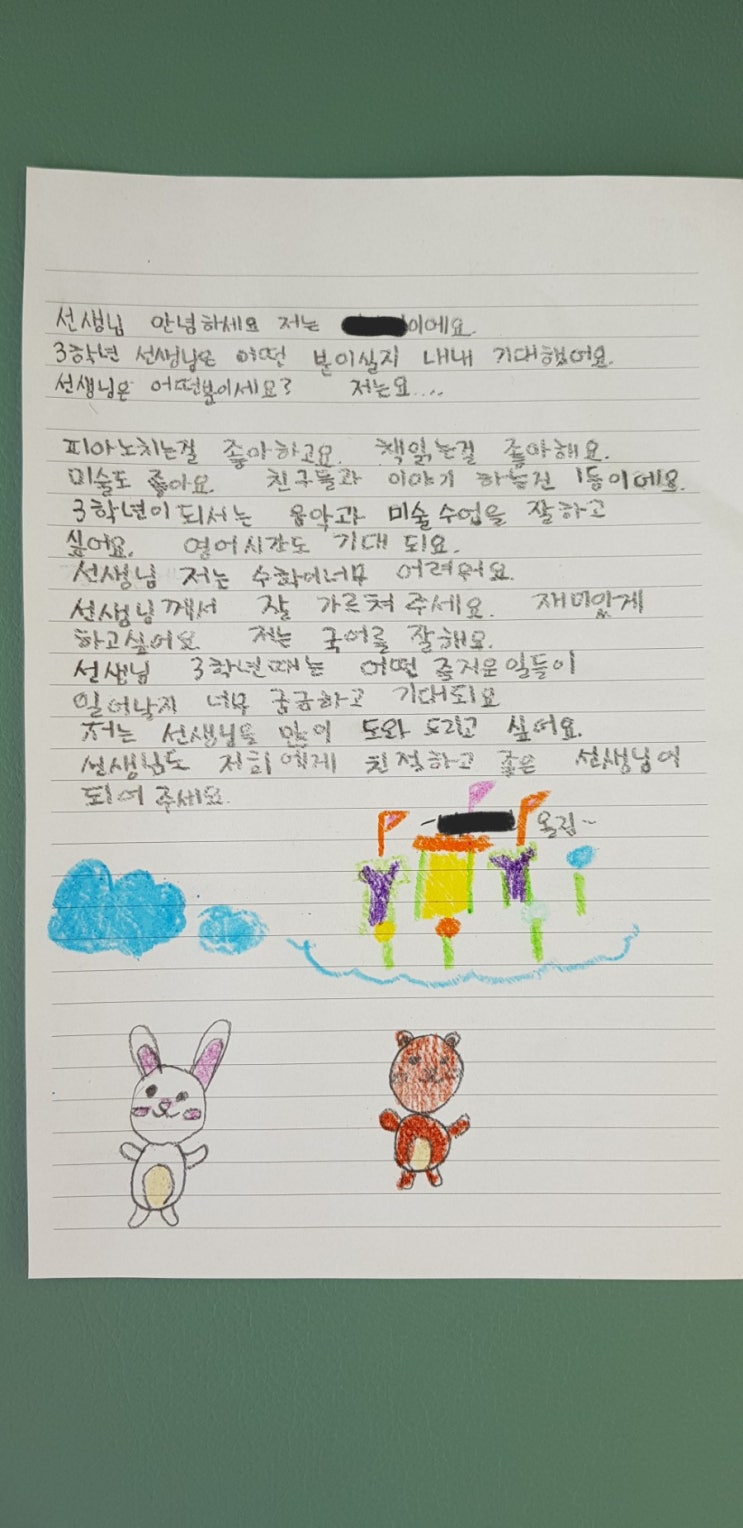 선생님 안녕하세요 저는 이에요.
3학년 선생님은 어떤 분이실지 내내 기대했어요.
선생님은 어떤분이세요? 저는요....
피아노치는걸 좋아하고요. 책읽는걸 좋아해요.
미술도 좋아요. 친구들과 이야기 하는건 1등이에요.
3학년이되서는 음악과 미술수업을 잘하고
싶어요. 영어시간도 기대 되요.
선생님 저는 수학이너무 어려워요.
선생님께서 잘 가르쳐주세요. 재미있게
하고싶어요. 저는 국어를 잘해요.
선생님 3학년때는 어떤 즐거운일들이
일어날지 너무 궁금하고 기대되요
저는 선생님을 많이 도와 드리고 싶어요.
선생님도 저희에게 친절하고 좋은 선생님이
되어주세요.
- 올림~